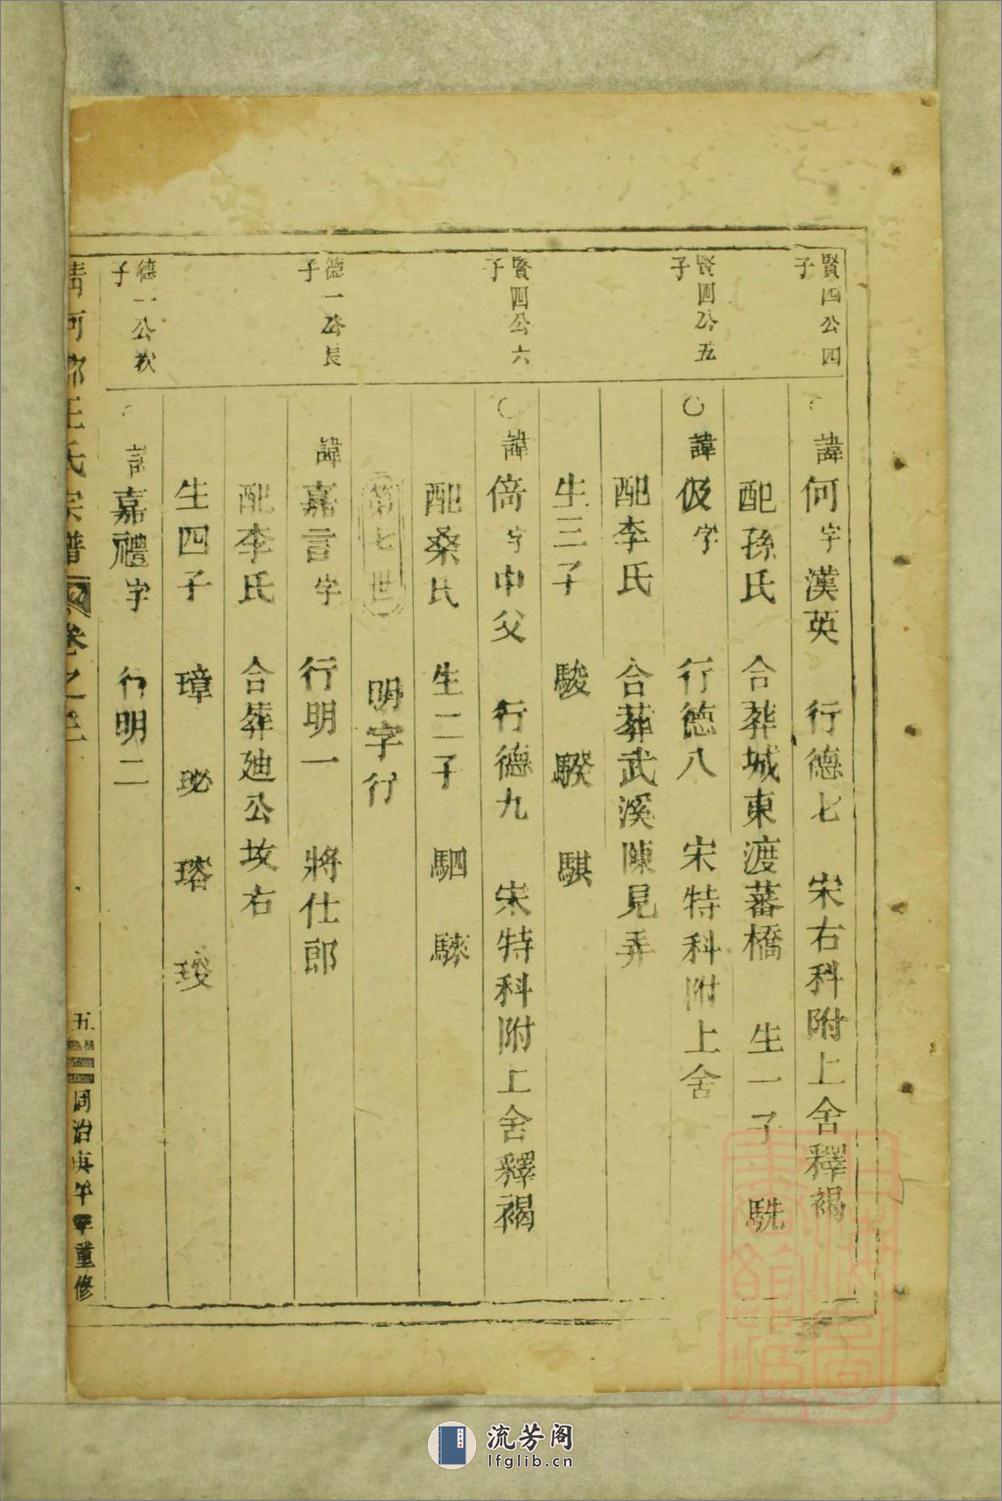 賢四公四子
諱何字漢英 行德七 宋右科附上舍釋褐
配孫氏 合葬城東渡蕃橋 生一子 駪
賢四公五子
〇諱伋字 行德八 宋特科附上舍
配李氏 合葬武溪陳見弄
生三子 駿 騤 騏
賢四公六子
〇諱倚字中父 行德九 宋特科附上舍釋褐
配桑氏 生二子 駟 騋
第七世 明字行
德一公長子
諱嘉言字 行明一 將仕郎
配李氏 合葬廸公坟右
生四子 璋 珌 瑹 琝
德一公次子
諱嘉禮字 行明二
清河郡王氏宗譜 卷之三 五 同治庚午年重修
流芳阁
lfglib.cn